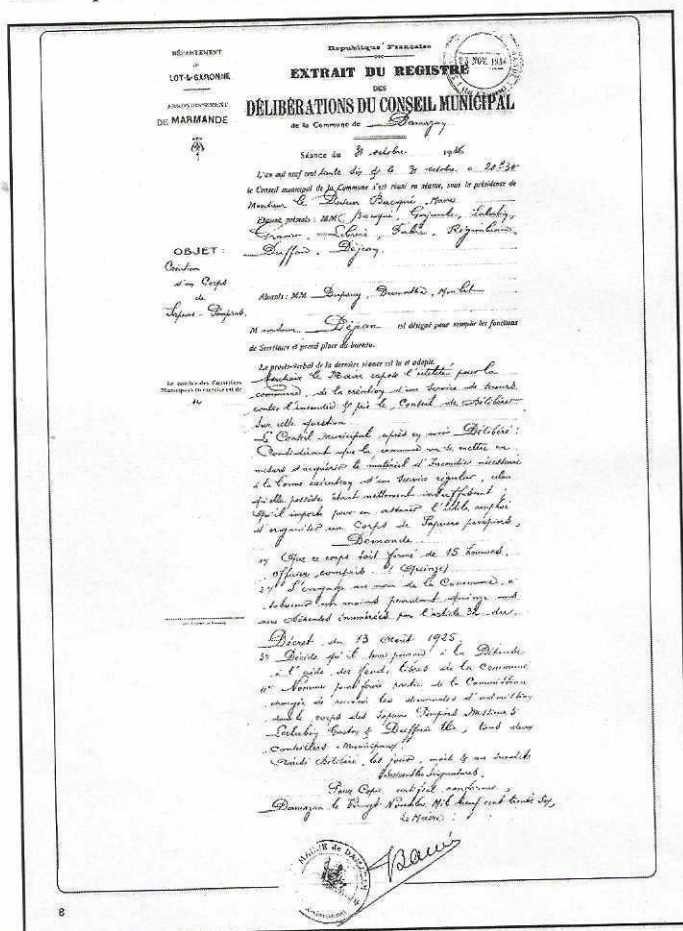 République Française
DÉPARTEMENT
DE
LOT-&-GARONNE
ARRONDISSEMENT
DE MARMANDE
NOV. 1936
EXTRAIT DU REGISTRE
DES
DÉLIBÉRATIONS DU CONSEIL MUNICIPAL
de la Commune de Damazan
Séance du 31 octobre 1936
L'an mil neuf cent trente six & le 31 octobre à 20h30
le Conseil municipal de la Commune s'est réuni en séance, sous la présidence de
Monsieur le Docteur Bacqué, Maire
Étaient présents : MM. Bacqué,
Dejean.
OBJET :
Création
d'un Corps
de
Sapeurs-Pompiers.
Absents : MM.
Monsieur Déjean est désigné pour remplir les fonctions
de Secrétaire et prend place au bureau.
Le procès-verbal de la dernière séance est lu et adopté.
Le nombre des Conseillers
Municipaux en exercice est de
Monsieur le Maire expose l'utilité pour la
commune, de la création d'un service de secours
contre l'incendie & prie le Conseil de délibérer
sur cette question.
Le Conseil Municipal, après en avoir Délibéré :
Considérant que la commune va se mettre en
mesure d'acquérir le matériel d'Incendie nécessaire
à la bonne exécution d'un service régulier, celui
qu'elle possède étant nettement insuffisant &
qu'il importe pour en assurer l'utile emploi
d'organiser un Corps de Sapeurs pompiers,
Demande
1° Que ce corps soit formé de 15 hommes,
officier compris. (Quinze)
2° S'engage au nom de la Commune, à
subvenir au moins pendant quinze ans
aux dépenses énumérées par l'article 32 du
Décret du 13 Août 1925.
3° Décide qu'il sera pourvu à la Dépense
à l'aide des fonds libres de la Commune
4° Nomme pour faire partie de la Commission
chargée de recevoir les demandes d'admission
dans le corps des Sapeurs Pompiers Messieurs
tous deux
conseillers Municipaux.
Ainsi délibéré, les jour, mois & an susdits
Suivent les signatures.
Pour Copie certifiée conforme,
Damazan le Vingt Novembre Mil neuf cent trente Six,
Le Maire :
MAIRIE de DAMAZAN
8